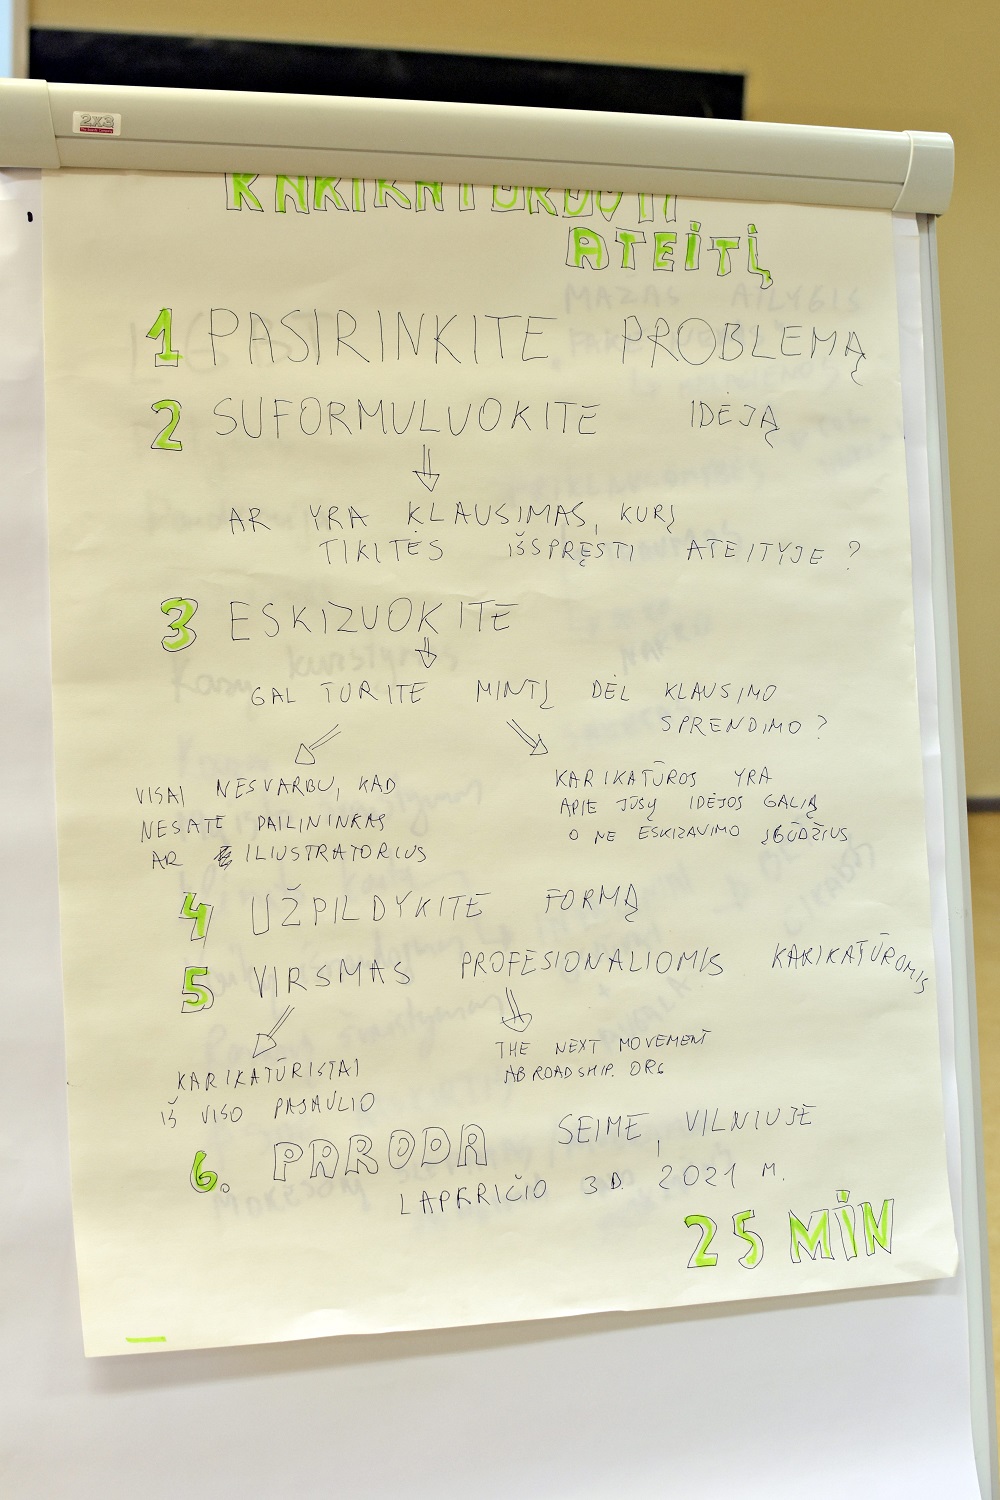 2x3
KARIKATŪRUOTI
ATEITĮ
1 PASIRINKITE PROBLEMĄ
2 SUFORMULUOKITE IDĖJĄ
AR YRA KLAUSIMAS, KURĮ
TIKITĖS IŠSPRĘSTI ATEITYJE ?
3 ESKIZUOKITE
GAL TURITE MINTĮ DĖL KLAUSIMO
SPRENDIMO ?
VISAI NESVARBU, KAD
NESATE DAILININKAS
AR ILIUSTRATORIUS
KARIKATŪROS YRA
APIE JŪSŲ IDĖJOS GALIĄ
O NE ESKIZAVIMO ĮGŪDŽIUS
4 UŽPILDYKITE FORMĄ
5 VIRSMAS PROFESIONALIOMIS KARIKATŪROMIS
KARIKATŪRISTAI
IŠ VISO PASAULIO
THE NEXT MOVEMENT
ABROADSHIP. ORG
6. PARODA SEIME, VILNIUJE
LAPKRIČIO 3 D. 2021 M.
25 MIN